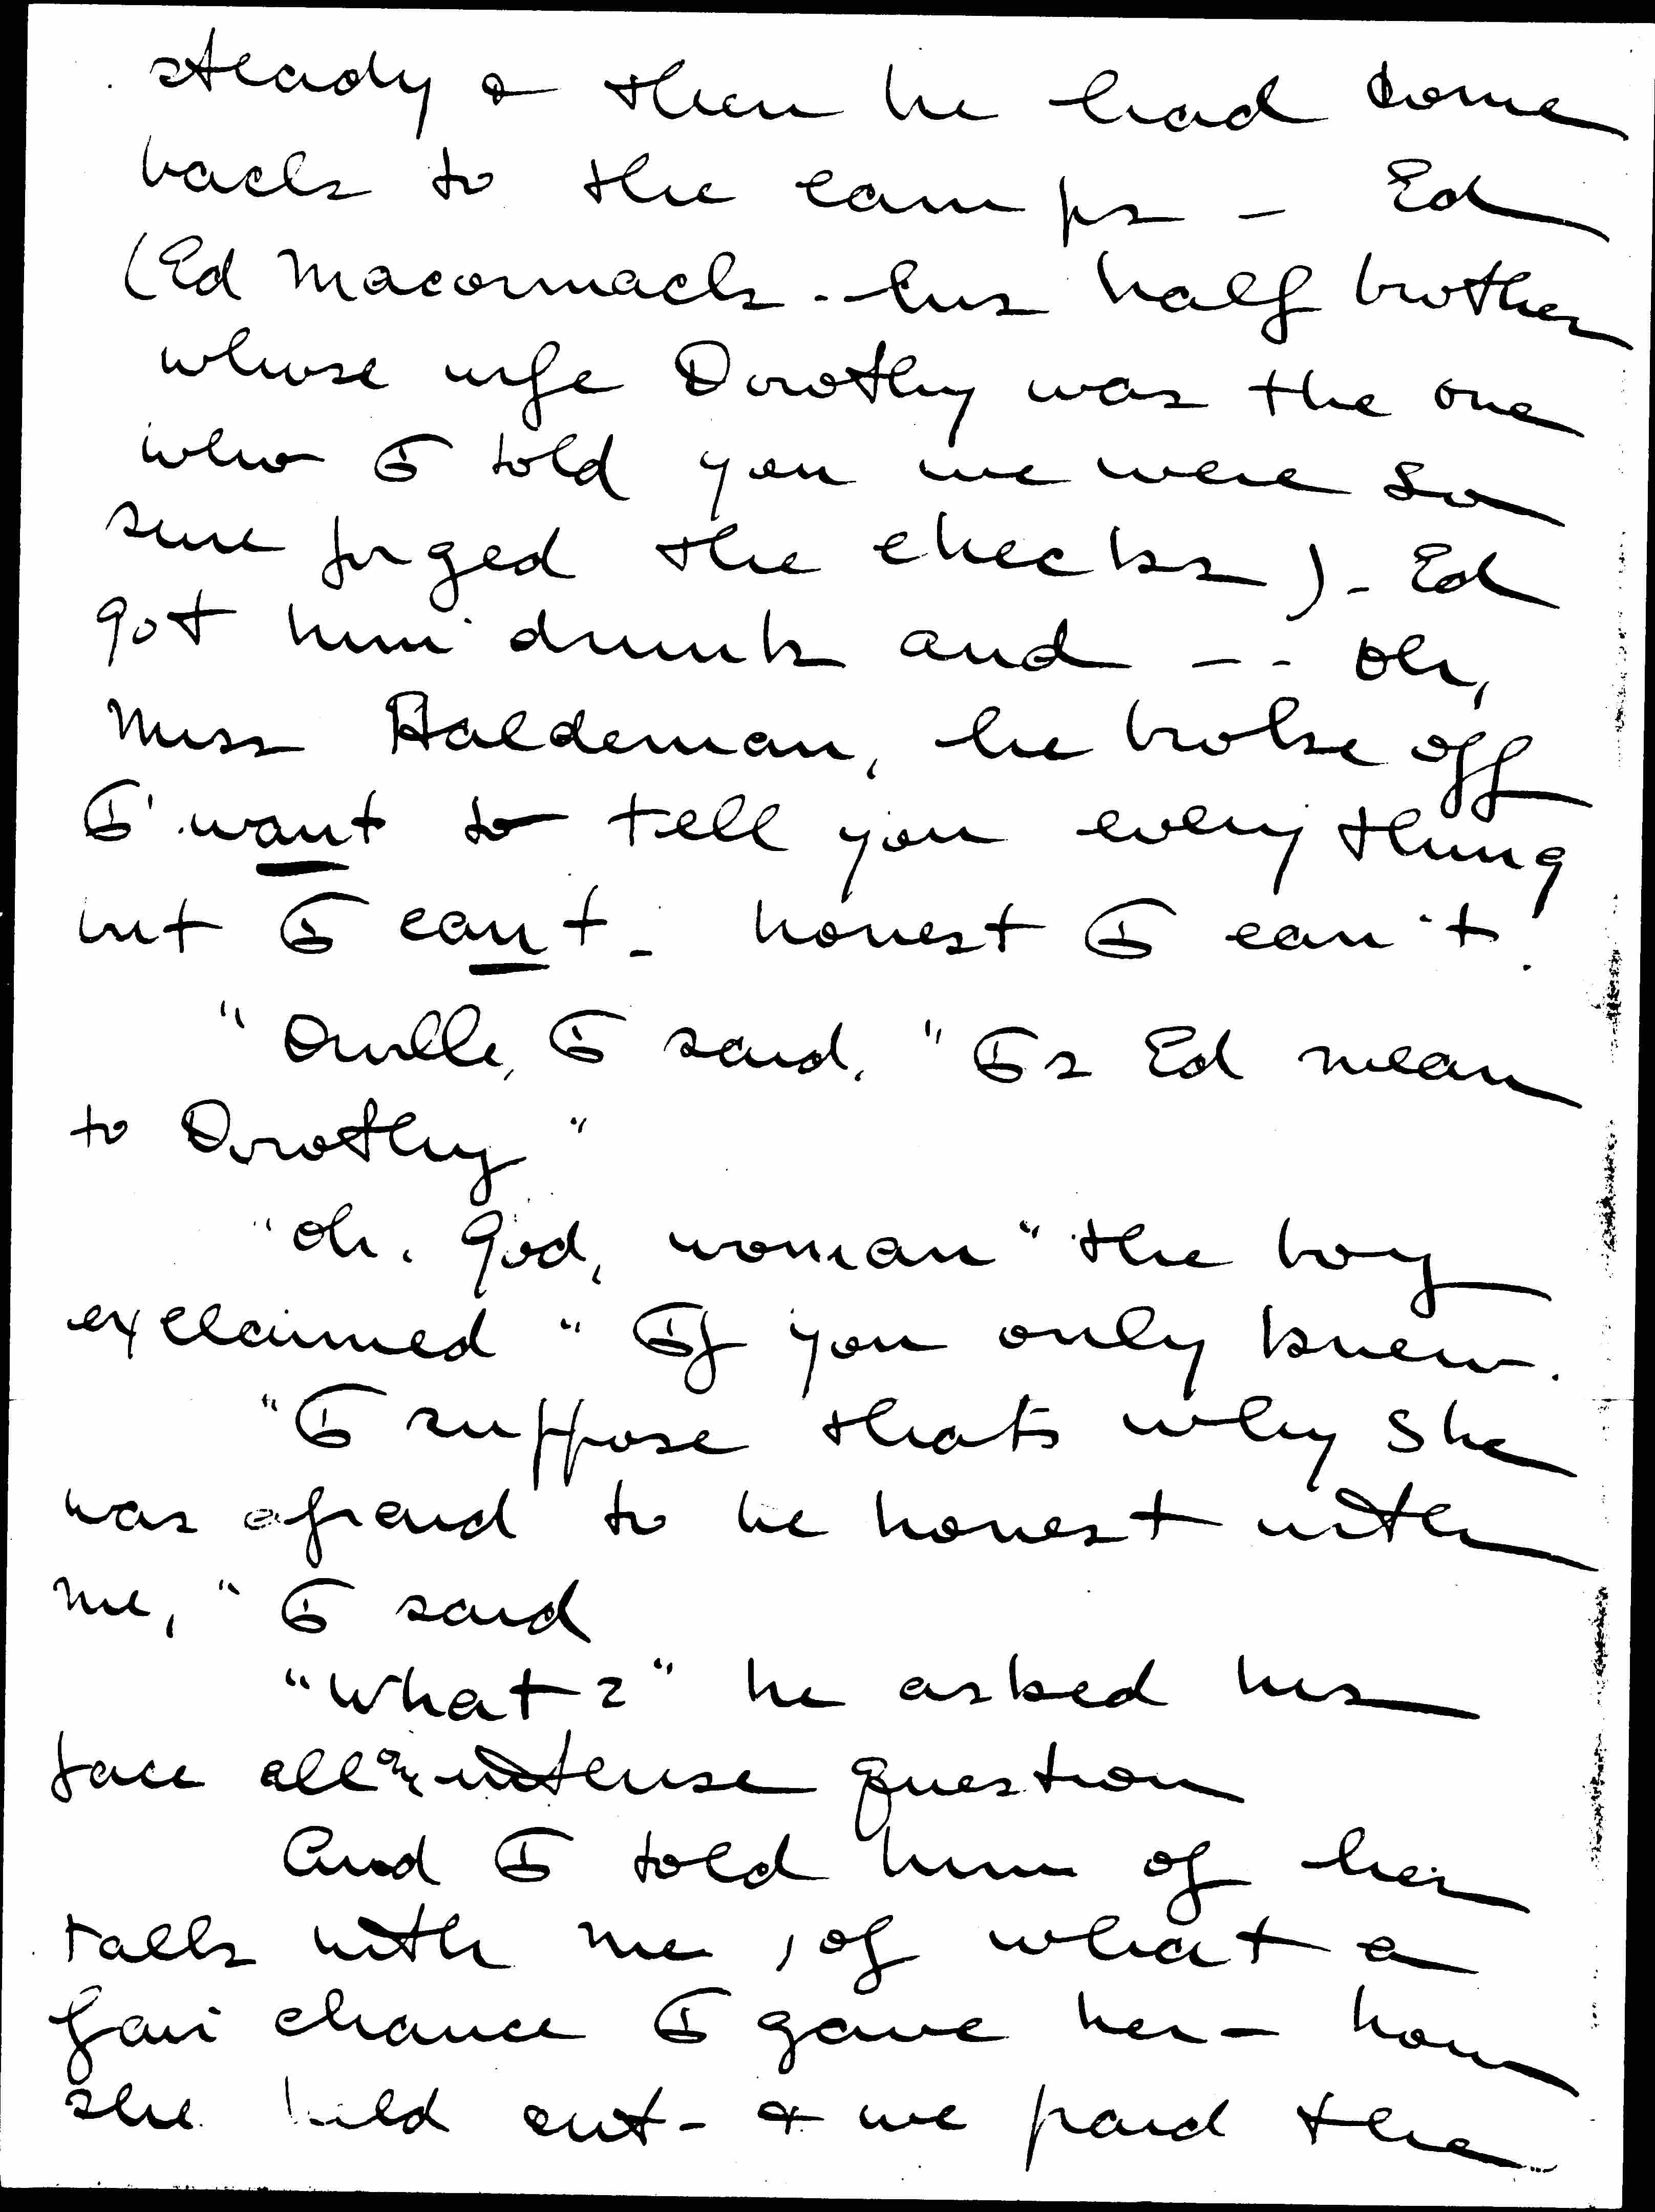 steady & then he had come
back to the camps - Ed
(Ed Macormack - his half brother
whose wife Dorothy was the one
who I told you we were so
sure forged the checks) - Ed
got him drunk and -- oh,
Miss Haldeman, he broke off
I want to tell you every thing
but I cant - honest I can't.
"Orville, I said. "Is Ed mean
to Dorothy"
"oh. God, woman" the boy
exclaimed "If you only knew.
"I suppose thats why she
was afraid to be honest with
me," I said
"What?" he asked his
face all an intense question
And I told him of her
talk with me, of what a
fair chance I gave her - how
she held out - & we paid the